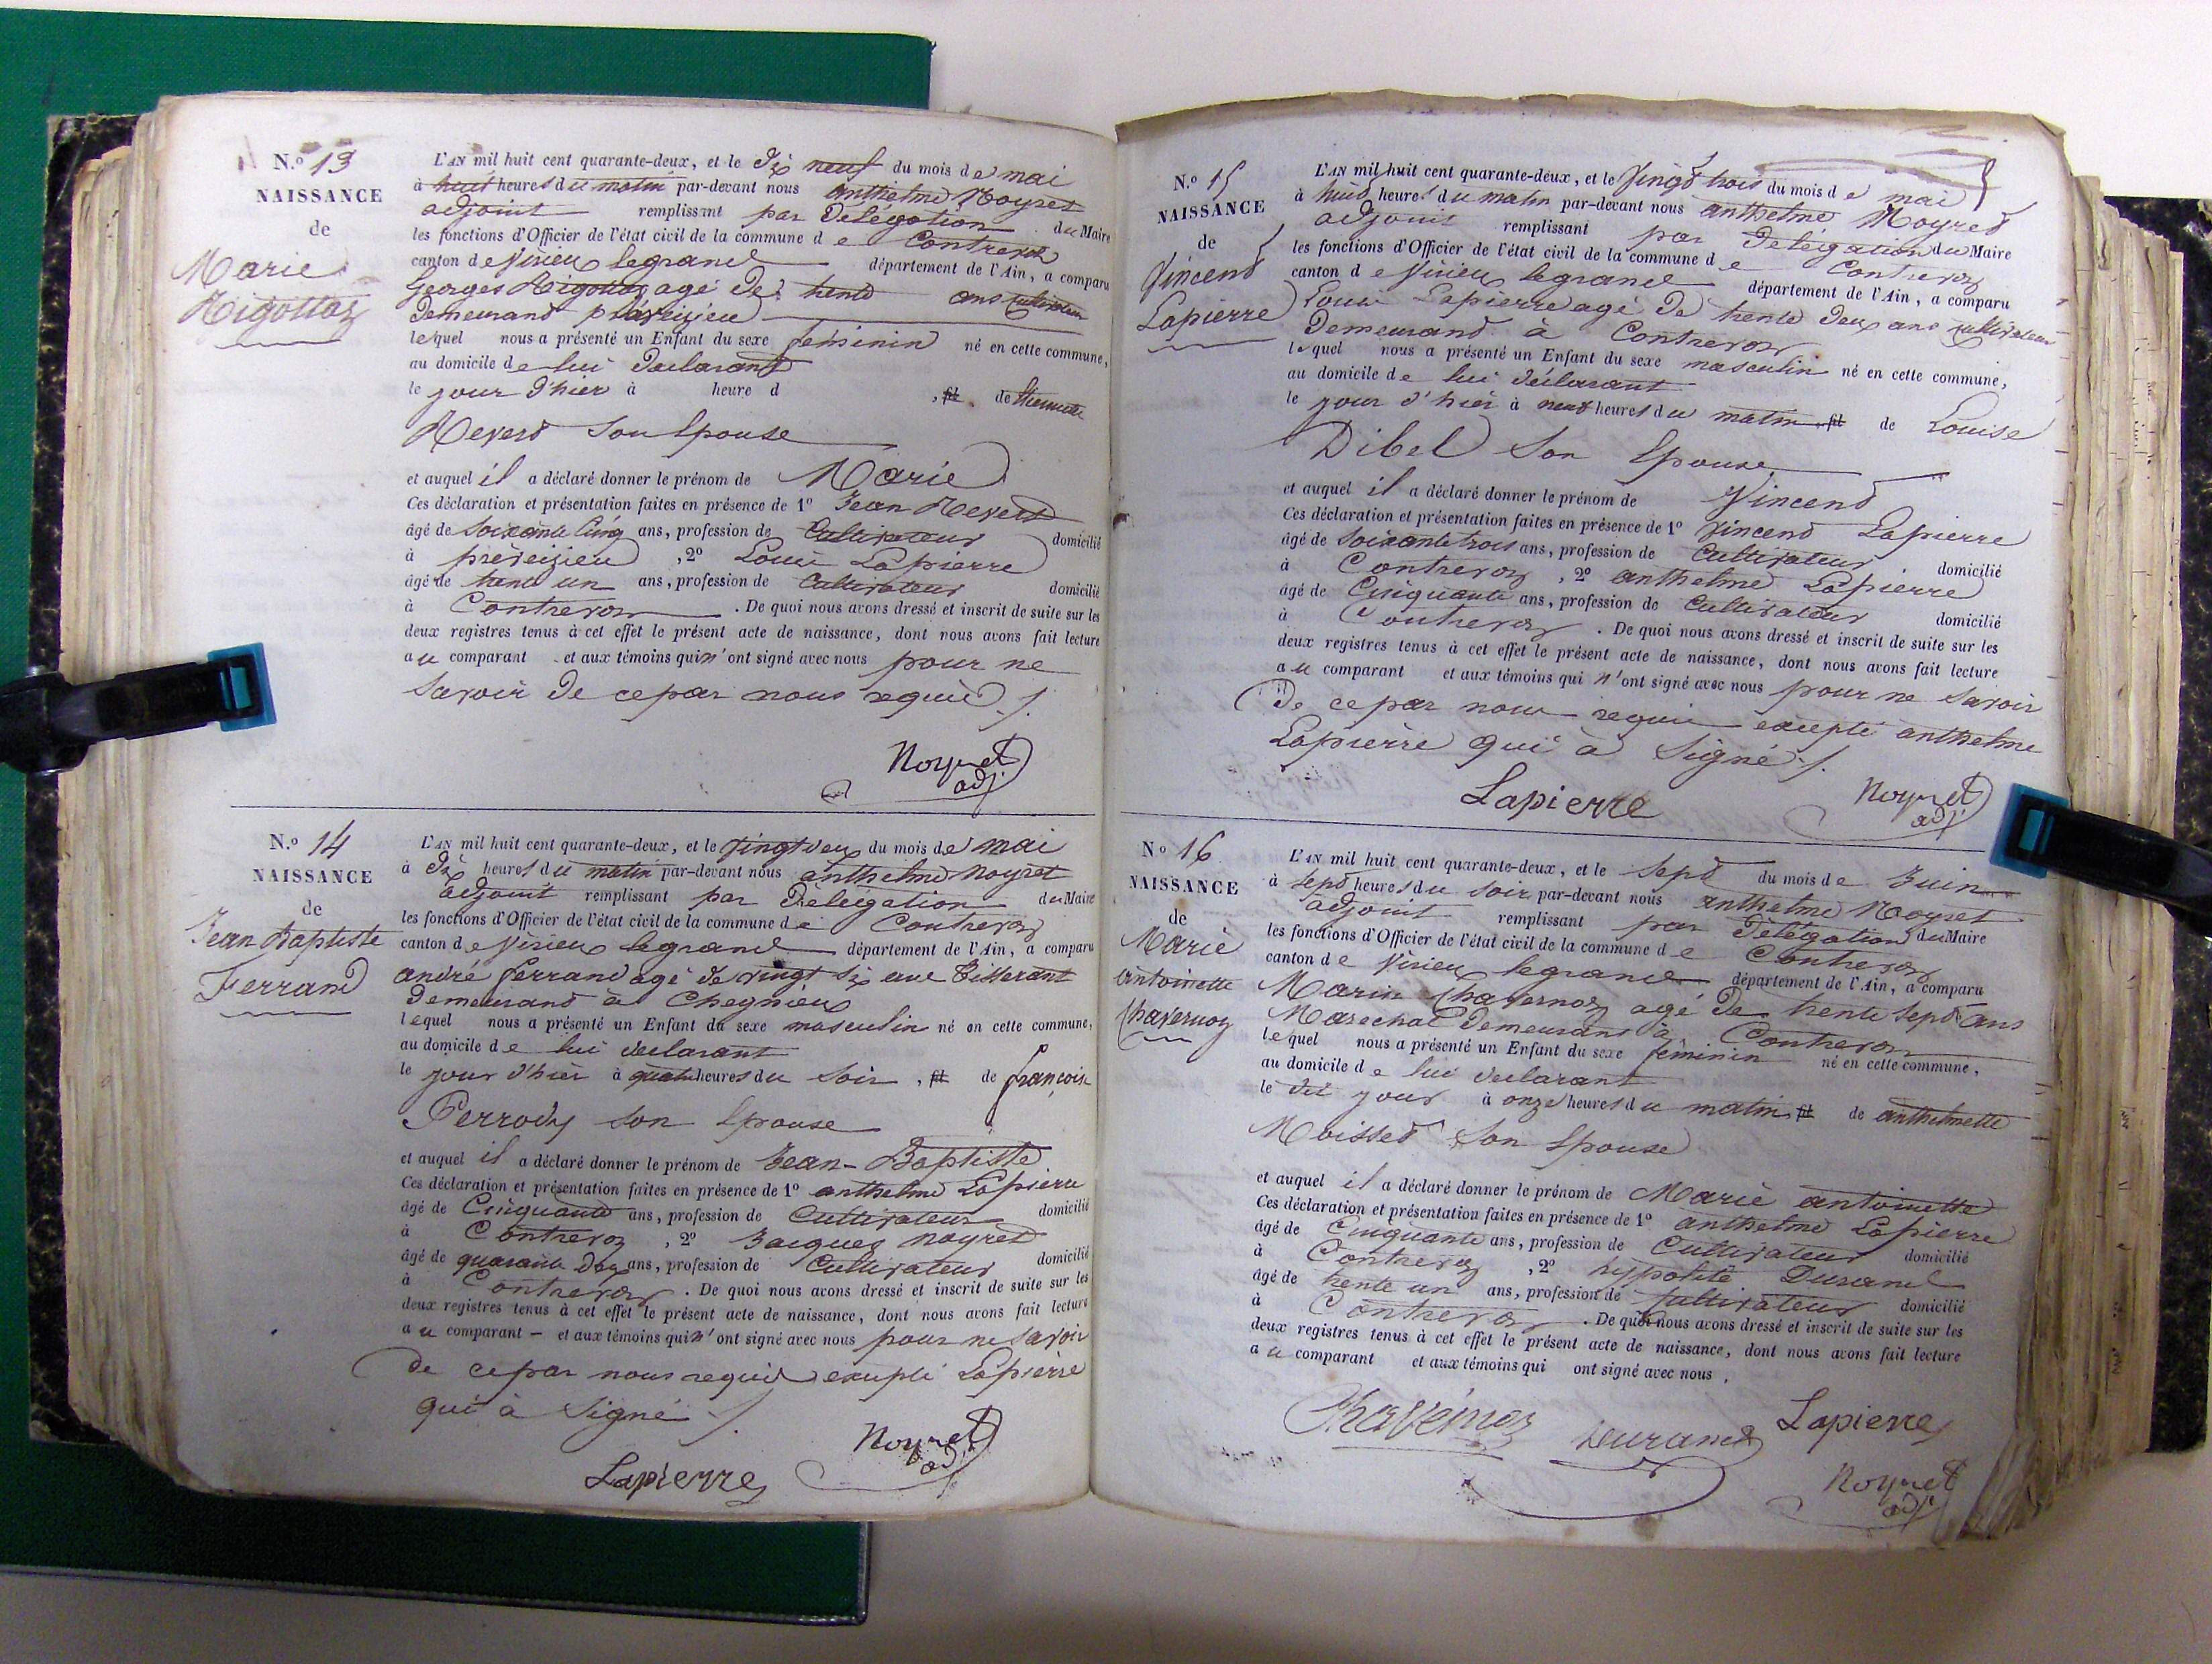 N.o 13
NAISSANCE
de
Marie
Rigottaz
L'AN mil huit cent quarante-deux, et le dix neuf du mois de mai
à huit heures du matin par-devant nous anthelme Noyret
adjoint remplissant par Délégation du Maire
les fonctions d'Officier de l'état civil de la commune de Contrevoz
canton de Virieu legrand département de l'Ain, a comparu
Georges Rigottaz agé de trente ans cultivateur
demeurand préveizieu
lequel nous a présenté un Enfant du sexe féminin né en cette commune,
au domicile de lui declarant
le jour d'hier à heure d , fil de
Reverd son Epouse
et auquel il a déclaré donner le prénom de Marie
Ces déclaration et présentation faites en présence de 1o Jean Reverd
âgé de Soixante Cinq ans, profession de Cultivateur domicilié
à préveizieu , 2o Louis Lapierre
âgé de trente un ans, profession de Cultivateur domicilié
à Contrevoz . De quoi nous avons dressé et inscrit de suite sur les
deux registres tenus à cet effet le présent acte de naissance, dont nous avons fait lecture
au comparant et aux témoins qui n'ont signé avec nous pour ne
savoir de ce par nous requis ./.
Noyret
adj
N.o 14
NAISSANCE
de
Jean Baptiste
Ferrand
L'AN mil huit cent quarante-deux, et le vingt deux du mois de mai
à dix heures du matin par-devant nous anthelme Noyret
adjoint remplissant par Délégation du Maire
les fonctions d'Officier de l'état civil de la commune de Contrevoz
canton de Virieu legrand département de l'Ain, a comparu
andré ferrand agé de vingt six ans Tisserant
demeurand à Chegnieu
lequel nous a présenté un Enfant du sexe masculin né en cette commune,
au domicile de lui declarant
le jour d'hier à quatre heures du soir , fil de françoise
Perrody son Epouse
et auquel il a déclaré donner le prénom de Jean-Baptiste
Ces déclaration et présentation faites en présence de 1o anthelme Lapierre
âgé de Cinquante ans, profession de Cultivateur domicilié
à Contrevoz , 2o Jacques noyret
âgé de quarante deux ans, profession de Cultivateur domicilié
à Contrevoz . De quoi nous avons dressé et inscrit de suite sur les
deux registres tenus à cet effet le présent acte de naissance, dont nous avons fait lecture
au comparant – et aux témoins qui n'ont signé avec nous pour ne savoir
de ce par nous requis excepté Lapierre
qui à signé ./.
Noyret
adj
Lapierre
N.o 15
NAISSANCE
de
Vincend
Lapierre
L'AN mil huit cent quarante-deux, et le vingt trois du mois de mai
à huit heures du matin par-devant nous anthelme Noyret
adjoint remplissant par Délégation du Maire
les fonctions d'Officier de l'état civil de la commune de Contrevoz
canton de Virieu legrand département de l'Ain, a comparu
Louis Lapierre agé de trente deux ans cultivateur
demeurand à Contrevoz
lequel nous a présenté un Enfant du sexe masculin né en cette commune,
au domicile de lui déclarant
le jour d'hier à neuf heures du matin fil de Louise
Dibel son Epouse
et auquel il a déclaré donner le prénom de Vincend
Ces déclaration et présentation faites en présence de 1o Vincend Lapierre
âgé de Soixante trois ans, profession de Cultivateur domicilié
à Contrevoz , 2o anthelme Lapierre
âgé de Cinquante ans, profession de Cultivateur domicilié
à Contrevoz . De quoi nous avons dressé et inscrit de suite sur les
deux registres tenus à cet effet le présent acte de naissance, dont nous avons fait lecture
au comparant et aux témoins qui n'ont signé avec nous pour ne savoir
de ce par nous requis excepté anthelme
Lapierre qui à signé ./.
Lapierre
Noyret
adj
No 16
NAISSANCE
de
Marie
antoinette
Chavernoz
L'AN mil huit cent quarante-deux, et le sept du mois de Juin
à sept heures du soir par-devant nous anthelme Noyret
adjoint remplissant par Délégation du Maire
les fonctions d'Officier de l'état civil de la commune de Contrevoz
canton de Virieu legrand département de l'Ain, a comparu
Marin Chavernoz agé de trente sept ans
Marechal demeurans à Contrevoz
lequel nous a présenté un Enfant du sexe féminin né en cette commune,
au domicile de lui declarant
le dit jour à onze heures du matin fil de anthelmette
Moissed son Epouse
et auquel il a déclaré donner le prénom de Marie antoinette
Ces déclaration et présentation faites en présence de 1o anthelme Lapierre
âgé de Cinquante ans, profession de Cultivateur domicilié
à Contrevoz , 2o hyppolite Durand
âgé de trente un ans, profession de Cultivateur domicilié
à Contrevoz . De quoi nous avons dressé et inscrit de suite sur les
deux registres tenus à cet effet le présent acte de naissance, dont nous avons fait lecture
au comparant et aux témoins qui ont signé avec nous .
Chavernoz Durand Lapierre
Noyret
adj